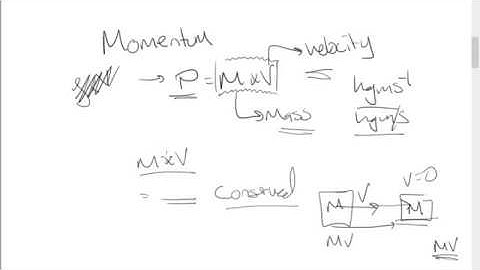 Momentum
→ P = M x V → velocity
→ Mass
kgms⁻¹
kgm/s
M x V
= conserved
M V → M V=0
MV
MV